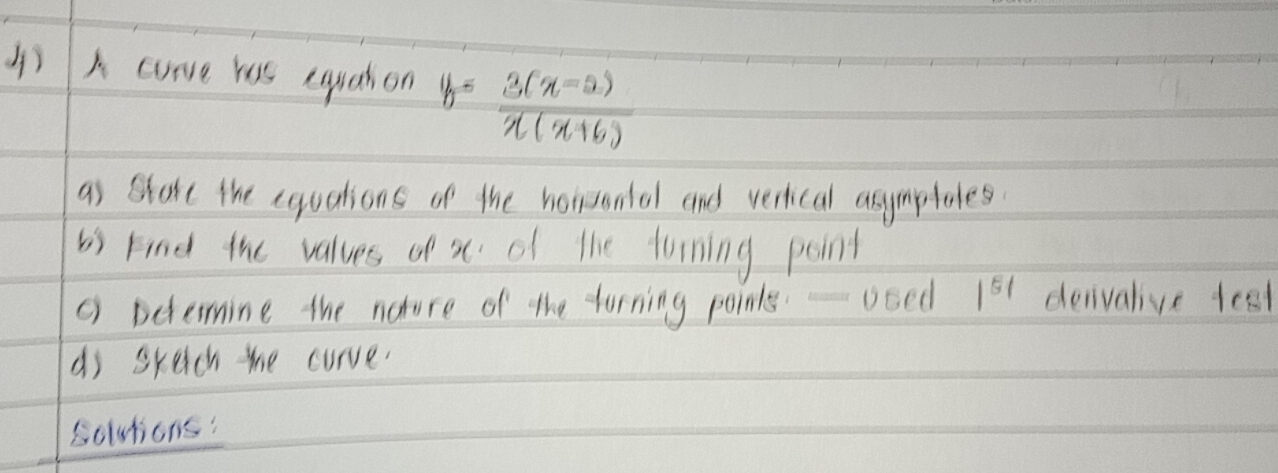 4) A curve has equation y = 3(x-2)
x(x+6)
a) State the equations of the horizontal and vertical asymptotes.
b) Find the values of x. of the turning point
c) Determine the nature of the turning points. — used 1st derivative test
d) Sketch the curve.
Solutions: